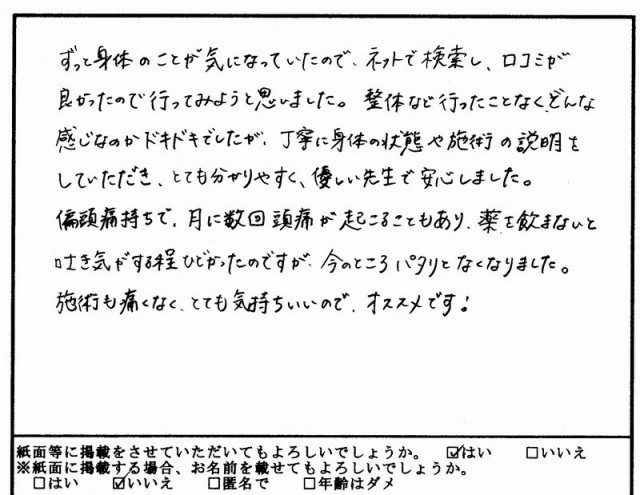 ずっと身体のことが気になっていたので、ネットで検索し、口コミが
良かったので行ってみようと思いました。整体など行ったことなく、どんな
感じなのかドキドキでしたが、丁寧に身体の状態や施術の説明を
していただき、とても分かりやすく、優しい先生で安心しました。
偏頭痛持ちで、月に数回頭痛が起こることもあり、薬を飲まないと
吐き気がする程ひどかったのですが、今のところパタリとなくなりました。
施術も痛くなく、とても気持ちいいので、オススメです!
紙面等に掲載をさせていただいてもよろしいでしょうか。 ☑はい □いいえ
※紙面に掲載する場合、お名前を載せてもよろしいでしょうか。
□はい ☑いいえ □匿名で □年齢はダメ